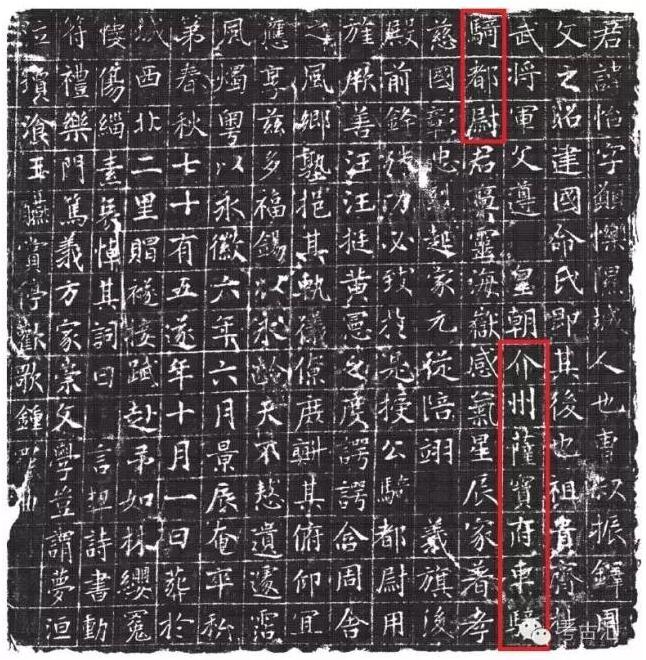 君諱怡字隰城人也曹叔振鐸周
文之昭建國命氏即其後也祖貴齊壯
武將軍父遵 皇朝介州薩寶府車騎
騎都尉君稟靈海嶽感氣星辰家著孝
慈國彰忠烈起家元從陪翊 義旗後
殿前鋒殊功必致於是授公騎都尉用
旌厥善汪汪挺黃憲之度諤諤含周舍
之風鄉塾挹其軌儀僚庶欽其俯仰宜
應享茲多福錫以永齡天不憖遺遽霑
風燭粤以永徽六年六月景辰奄卒私
第春秋七十有五遂年十月一日葬於
城西北二里賵襚接踵赴弔如林纓冕
悽傷緇素哀悼其詞曰 言想詩書動
符禮樂門篤義方家崇文學豈謂夢洹
泣瓊飡玉讌賞停歡歌鍾
考古汇